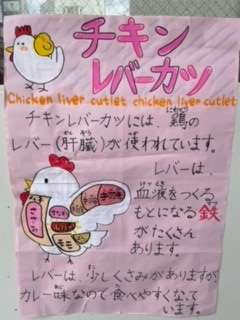 チキン
レバーカツ
Chicken liver cutlet chicken liver cutlet
チキンレバーカツには、鶏の
レバー(肝臓)が使われています。
レバーは、
血液をつくる
もとになる鉄
がたくさん
あります。
レバーは、少しくさみがありますが、
カレー味なので食べやすくなって
います。